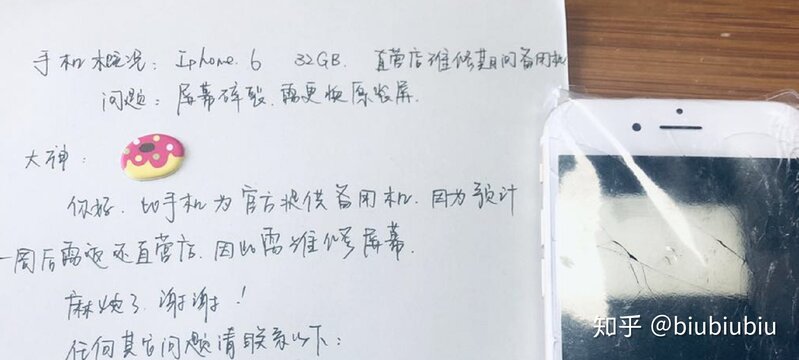 手机概况：Iphone 6 32GB. 直营店维修期间备用机
问题：屏幕碎裂.需更换原装屏.
大神：
你好.此手机为官方提供备用机.因为预计
一周后需返还直营店.因此需维修屏幕.
麻烦了.谢谢！
任何其它问题请联系以下：
知乎 @biubiubiu